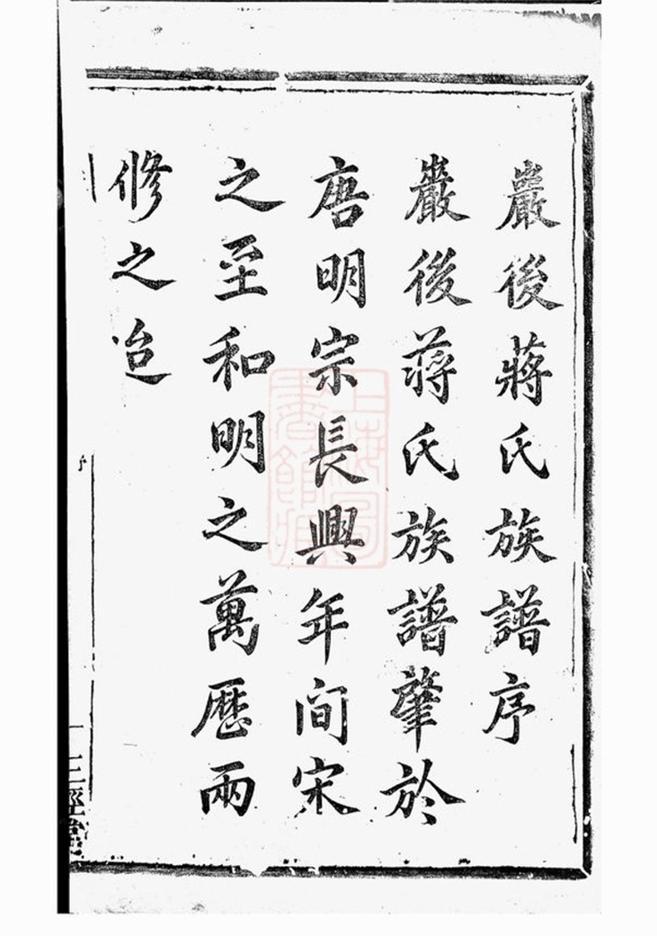 巖後蔣氏族譜序
巖後蔣氏族譜肇於
唐明宗長興年間宋
之至和明之萬曆兩
修之迨
三徑堂
上海圖書館藏